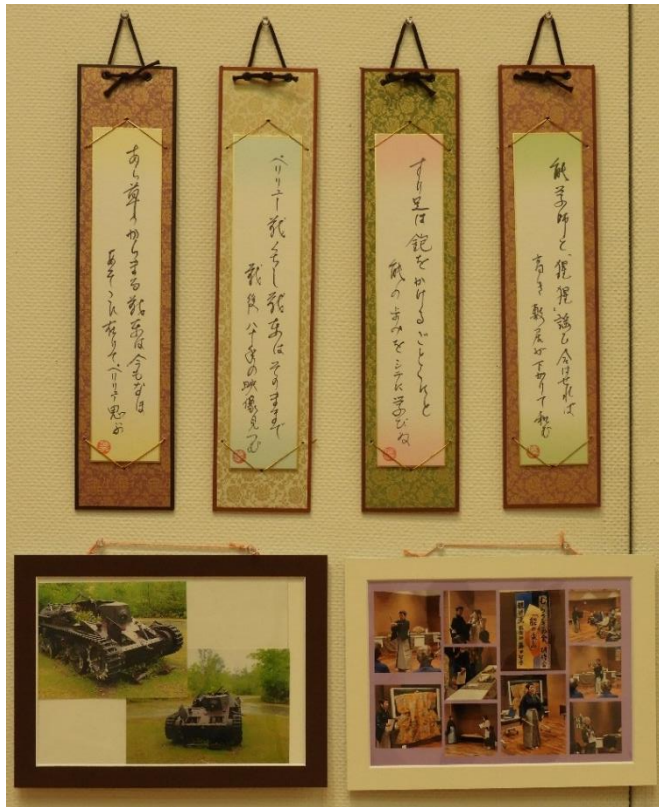 能楽師と「猩猩」謡ひ合はせれば
高き敷居が下がりて和む
すり足は鉋をかけるごとくにと
能の歩みをシテに学びぬ
ペリリュー戦くちし戦車はそのままで
戦後八十年の映像見つむ
あら草のからまる戦車は今もなほ
あそこに在りてペリリュー思ふ